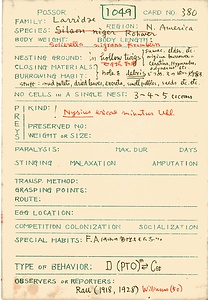 POSSOR 1049 CARD NO. 380
FAMILY: Larridae
SPECIES: Silaon niger Rohwer REGION: N. America
BODY WEIGHT: BODY LENGTH:
Solierella nigrans
NESTING GROUND: in hollow twigs
CLOSING MATERIALS:
BURROWING HABIT: holes debris
stuff: mud pellets, dried leaves, seeds, etc.
NO. CELLS IN A SINGLE NEST: 3-4-5 cocoons
PREYS
KIND: Nysius ericae minutus Uhl
PRESERVED NO:
WEIGHT OR SIZE:
PARALYSIS: MAX. DUR DAYS
STINGING MALAXATION AMPUTATION
TRANSP. METHOD:
GRASPING POINTS:
ROUTE:
EGG LOCATION:
COMPETITION COLONIZATION SOCIALIZATION
SPECIAL HABITS: F.A.
TYPE OF BEHAVIOR: D (PTO)
OBSERVERS OR REPORTERS:
Rau (1918, 1928) Williams (50)